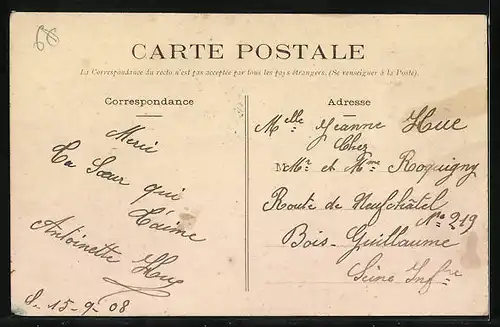 68
CARTE POSTALE
La Correspondance du recto n'est pas acceptée par tous les pays étrangers. (Se renseigner à la Poste).
Correspondance
Merci
Ta Sœur qui
t'aime
Antoinette Hue
S. 15-9-08
Adresse
Melle Jeanne Hue
Chez
Mr et Mme Roquigny
Route de Neufchâtel
No 219
Bois-Guillaume
Seine Infre